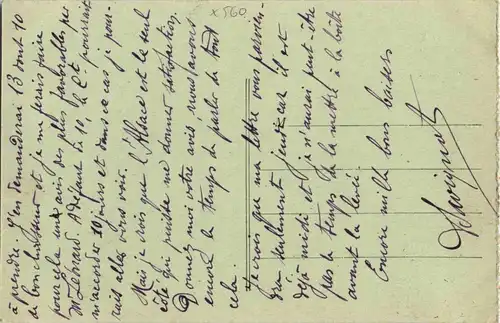 à prendre. J'en demanderai 13 dont 10
de bon chasseur et je me ferais faire
pour cela un avis des plus favorables par
Mr Lénard. A défaut la 10e Cie pourrait
m'accorder 10 jours et dans ce cas je pour-
rais aller vous voir.
Mais je crois que l'Alsace est le seul
côté qui puisse me donner satisfaction.
Donnez moi votre avis nous avons
encore le temps de parler de tout
cela.
Je crois que ma lettre vous parvien-
dra seulement jeudi car il est
déjà midi et je n'aurai peut-être
pas le temps de la mettre à la boîte
avant la levée.
Encore mille bons baisers
x 560